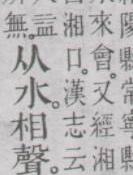 縣常寧縣
來會。又經湘
湘口。漢志云
無。
从水。相聲。